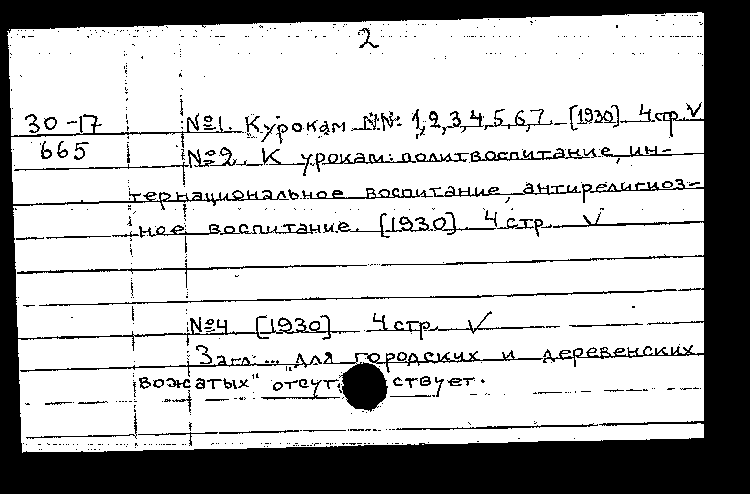 2
30-17 №1. К урокам №№ 1,2,3,4,5,6,7. [1930]. 4 стр. V
665 №2. К урокам: политвоспитание, ин-
тернациональное воспитание, антирелигиоз-
ное воспитание. [1930]. 4 стр. V
№4. [1930]. 4 стр. V
Загл: ... "для городских и деревенских
вожатых" отсутствует.